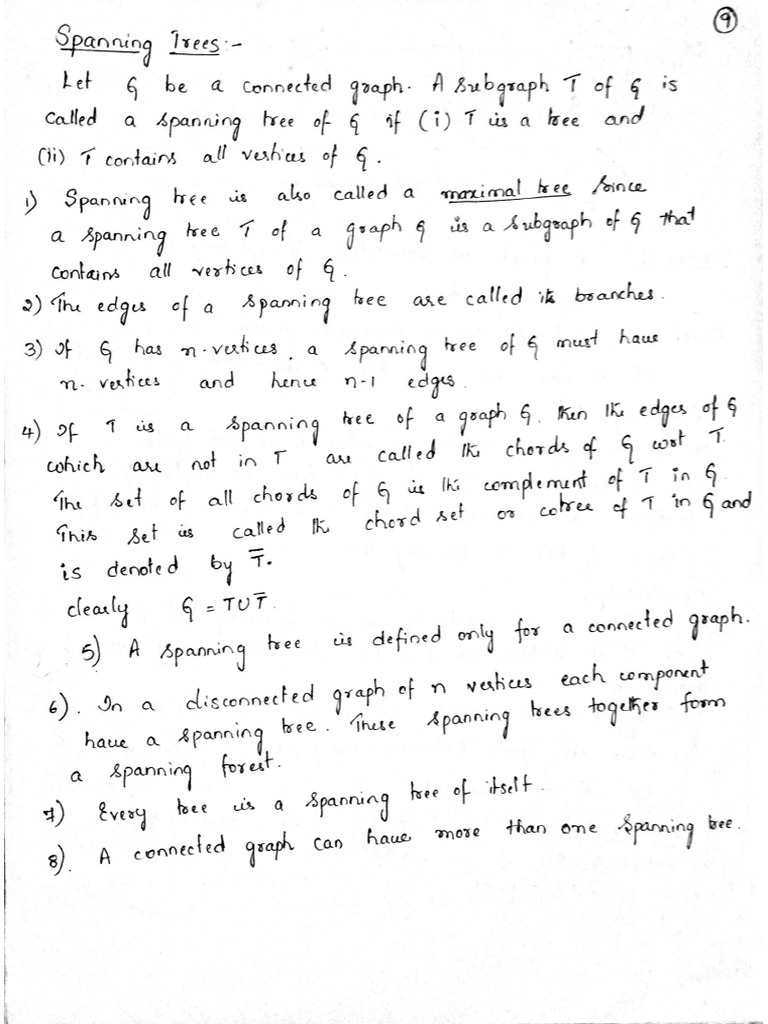 9
Spanning Trees :-
Let G be a connected graph. A Subgraph T of G is
called a spanning tree of G if (i) T is a tree and
(ii) T contains all vertices of G.
1) Spanning tree is also called a maximal tree Since
a spanning tree T of a graph G is a subgraph of G that
contains all vertices of G.
2) The edges of a spanning tree are called its branches.
3) If G has n-vertices, a spanning tree of G must have
n-vertices and hence n-1 edges.
4) If T is a spanning tree of a graph G. then the edges of G
which are not in T are called the chords of G wrt T.
The set of all chords of G is the complement of T in G
This set is called the chord set or cotree of T in G and
is denoted by T̅.
clearly G = T∪T̅.
5) A spanning tree is defined only for a connected graph.
6). In a disconnected graph of n vertices each component
have a spanning tree. These spanning trees together form
a spanning forest.
7) Every tree is a spanning tree of itself.
8). A connected graph can have more than one spanning tree.